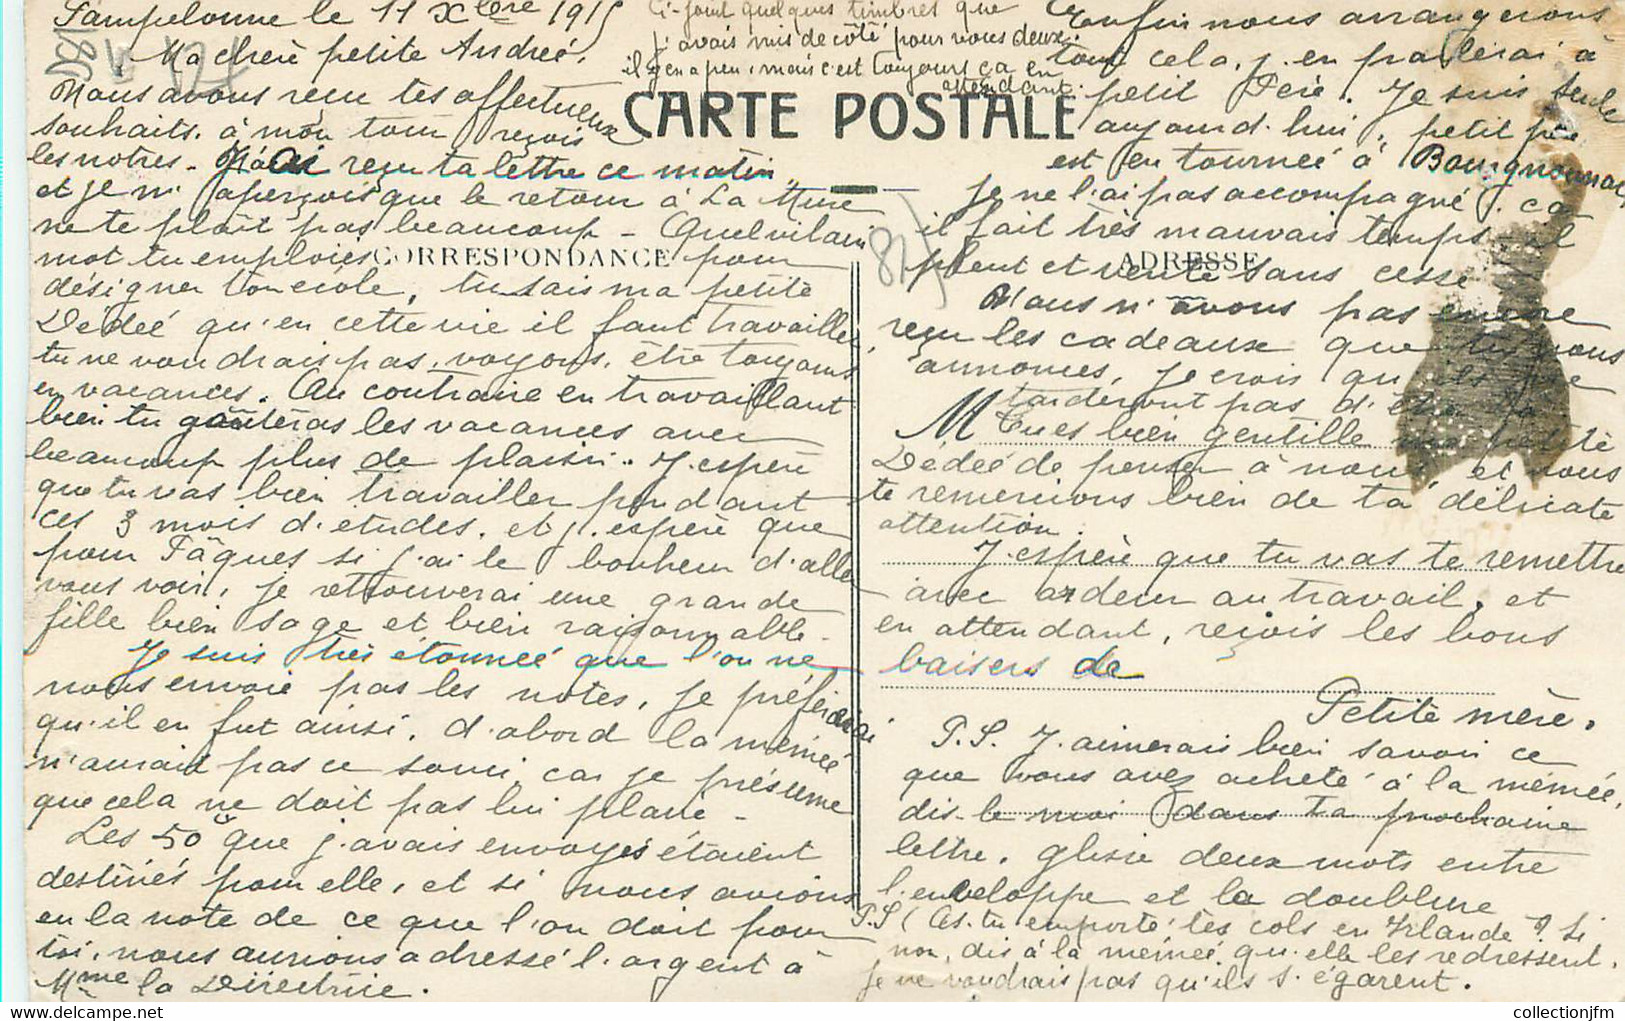 Pampelonne le 11 Xbre 1915
Ma chère petite Andrée,
Nous avons reçu tes affectueux
souhaits. à mon tour reçois
les notres. J'ai reçu ta lettre ce matin
et je m'aperçois que le retour à La Mure
ne te plaît pas beaucoup - Quel vilain
mot tu emploies pour
désigner ton école, tu sais ma petite
Dédée qu'en cette vie il faut travailler
tu ne voudrais pas, voyons, être toujours
en vacances. Au contraire en travaillant
bien tu goûteras les vacances avec
beaucoup plus de plaisir. J'espère
que tu vas bien travailler pendant
ces 3 mois d'études, et j'espère que
pour Pâques si j'ai le bonheur d'aller
vous voir, je retrouverai une grande
fille bien sage et bien raisonnable -
Je suis très étonnée que l'on ne
nous envoie pas les notes, je préférerai
qu'il en fut ainsi, d'abord la mémée
n'aurait pas ce souci, car je présume
que cela ne doit pas lui plaire -
Les 50 que j'avais envoyés étaient
destinés pour elle, et si nous avions
eu la note de ce que l'on doit pour
toi, nous aurions adressé l'argent à
Mme la Directrice.
Ci-joint quelques timbres que
j'avais mis de côté pour vous deux.
il y en a peu, mais c'est toujours ça en
attendant.
CARTE POSTALE
CORRESPONDANCE
ADRESSE
Enfin nous arrangerons
tout cela, j'en parlerai à
petit Père. Je suis seule
aujourd'hui, petit père
est en tournée à
Je ne l'ai pas accompagné, car
il fait très mauvais temps, il
pleut et vente sans cesse
Nous n'avons pas encore
reçu les cadeaux que tu nous
annonces, je crois qu'ils ne
tarderont pas d'être là.
Tu es bien gentille ma petite
Dédée de penser à nous, et nous
te remercions bien de ta délicate
attention.
J'espère que tu vas te remettre
avec ardeur au travail, et
en attendant, reçois les bons
baisers de
Petite mère.
P.S. J'aimerais bien savoir ce
que vous avez acheté à la mémée,
dis-le moi dans ta prochaine
lettre. glisse deux mots entre
l'enveloppe et la doublure
P.S (As-tu emporté tes cols en Irlande ? Si
non, dis à la mémée qu'elle les redressent.
Je ne voudrais pas qu'ils s'égarent.
M
collectionjfm